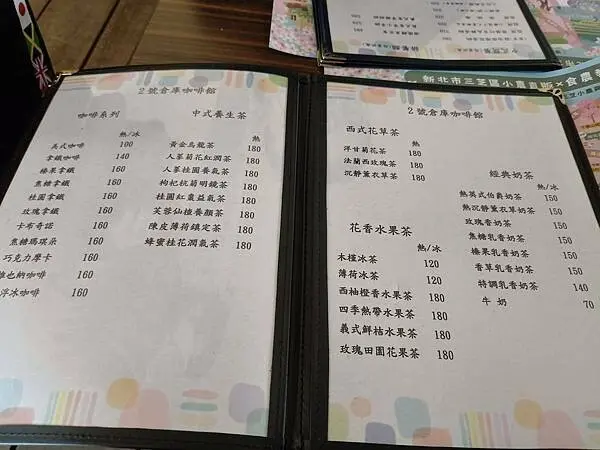 新北市三芝區小農
食農
2號倉庫咖啡館
咖啡系列
熱/冰
美式咖啡 100
拿鐵咖啡 140
榛果拿鐵 160
焦糖拿鐵 160
桂圓拿鐵 160
玫瑰拿鐵 160
卡布奇諾 160
焦糖瑪琪朵 160
巧克力摩卡 160
維也納咖啡 160
漂浮冰咖啡 160
中式養生茶
熱
黃金烏龍茶 180
人蔘菊花紅潤茶 180
人蔘桂圓養氣茶 180
枸杞杭菊明鏡茶 180
桂圓紅棗益氣茶 180
芙蓉仙楂養顏茶 180
陳皮薄荷鎮定茶 180
蜂蜜桂花潤氣茶 180
2號倉庫咖啡館
西式花草茶
熱
洋甘菊花茶 180
法蘭西玫瑰茶 180
沉靜薰衣草茶 180
花香水果茶
熱/冰
木槿冰茶 120
薄荷冰茶 120
西柚橙香水果茶 180
四季熱帶水果茶 180
義式鮮桔水果茶 180
玫瑰田園花果茶 180
經典奶茶
熱/冰
熱英式伯爵奶茶 150
熱沉靜薰衣草奶茶 150
玫瑰香奶茶 150
焦糖乳香奶茶 150
榛果乳香奶茶 150
香草乳香奶茶 150
特調乳香奶茶 140
牛奶 70